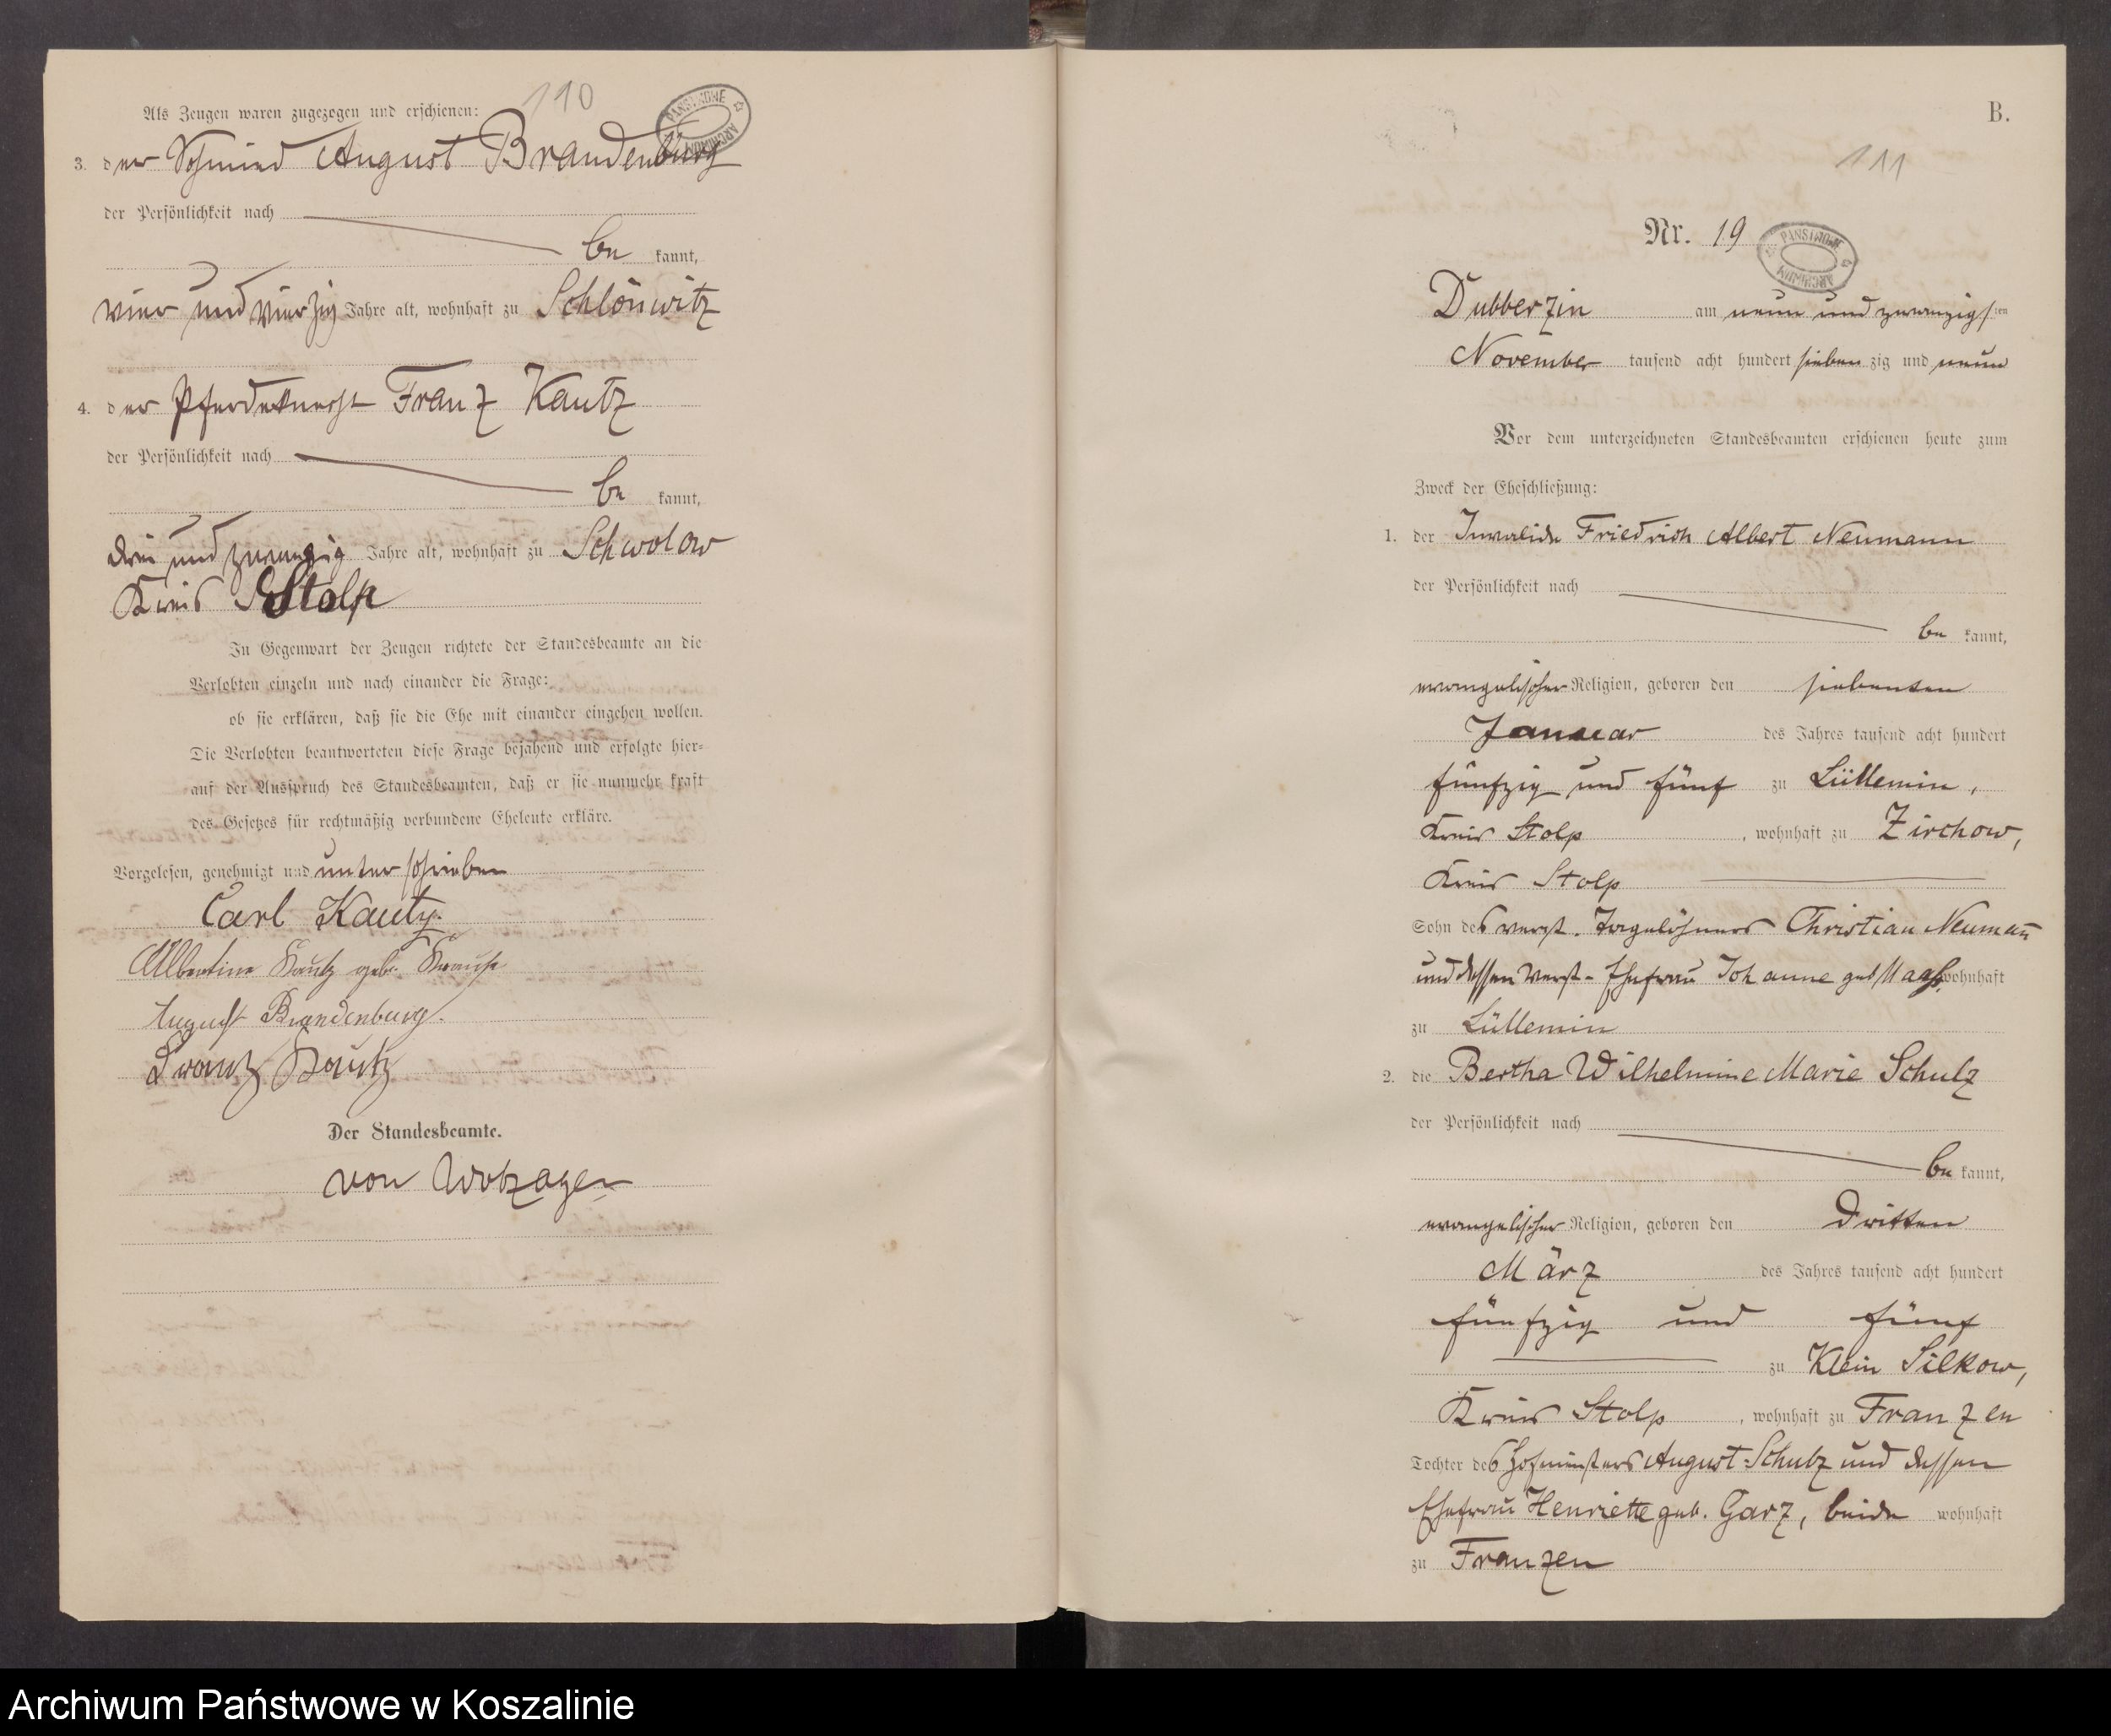 110
Als Zeugen waren zugezogen und erschienen:
PANSTWOWE
ARCHIWUM
3. der Schmied August Brandenburg
der Persönlichkeit nach
be kannt,
vier und vierzig Jahre alt, wohnhaft zu Schlönwitz
4. der Pferdeknecht Franz Kautz
der Persönlichkeit nach
be kannt,
drei und zwanzig Jahre alt, wohnhaft zu Schwolow
Kreis Stolp
In Gegenwart der Zeugen richtete der Standesbeamte an die
Verlobten einzeln und nach einander die Frage:
ob sie erklären, daß sie die Ehe mit einander eingehen wollen.
Die Verlobten beantworteten diese Frage bejahend und erfolgte hier-
auf der Ausspruch des Standesbeamten, daß er sie nunmehr kraft
des Gesetzes für rechtmäßig verbundene Eheleute erkläre.
Vorgelesen, genehmigt und unterschrieben
Carl Kautz.
Albertine Kautz geb. Krause
August Brandenburg.
Franz Kautz
Der Standesbeamte.
von
B.
111
Nr. 19
PANSTWOWE
ARCHIWUM
Dubberzin am neun und zwanzigsten
November tausend acht hundert siebenzig und neun
Vor dem unterzeichneten Standesbeamten erschienen heute zum
Zweck der Eheschließung:
1. der Invalide Friedrich Albert Neumann
der Persönlichkeit nach
be kannt,
evangelischer Religion, geboren den siebenten
Januar des Jahres tausend acht hundert
fünfzig und fünf zu Lüllemin,
Kreis Stolp, wohnhaft zu Zirchow,
Kreis Stolp
Sohn des verst. Tagelöhners Christian Neumañ
und dessen verst. Ehefrau Johanne geb. wohnhaft
zu Lüllemin
2. die Bertha Wilhelmine Marie Schulz
der Persönlichkeit nach
be kannt,
evangelischer Religion, geboren den dritten
März des Jahres tausend acht hundert
fünfzig und fünf
zu Klein Silkow,
Kreis Stolp, wohnhaft zu Franzen
Tochter des Hofmeisters August Schulz und dessen
Ehefrau Henriette geb. Garz, beide wohnhaft
zu Franzen
Archiwum Państwowe w Koszalinie